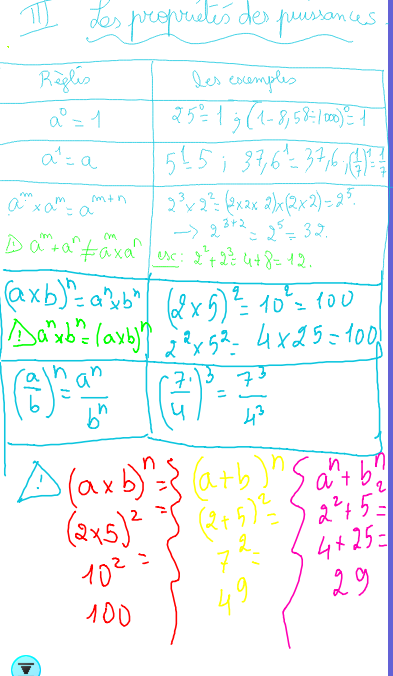 III Les propriétés des puissances.
Règles Des exemples
a⁰ = 1 25⁰ = 1 ; (1-8,58=1000)⁰ = 1
a¹ = a 5¹ = 5 ; 37,6¹ = 37,6 ; (1/7)¹ = 1/7
aᵐ × aⁿ = aᵐ⁺ⁿ 2³ × 2² = (2×2×2)×(2×2) = 2⁵.
→ 2³⁺² = 2⁵ = 32.
⚠ aᵐ + aⁿ ≠ aᵐ × aⁿ 2² + 2³ = 4 + 8 = 12.
(a×b)ⁿ = aⁿ × bⁿ (2 × 5)² = 10² = 100
⚠ aⁿ × bⁿ = (a×b)ⁿ 2² × 5² = 4 × 25 = 100
(a/b)ⁿ = aⁿ/bⁿ (7/4)³ = 7³/4³
⚠ (a × b)ⁿ =
(2×5)² =
10² =
100
(a + b)ⁿ
(2+5)² =
7² =
49
aⁿ + bⁿ
2² + 5² =
4 + 25 =
29